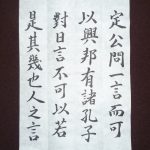 定公問一言而可
以興邦有諸孔子
對曰言不可以若
是其幾也人之言